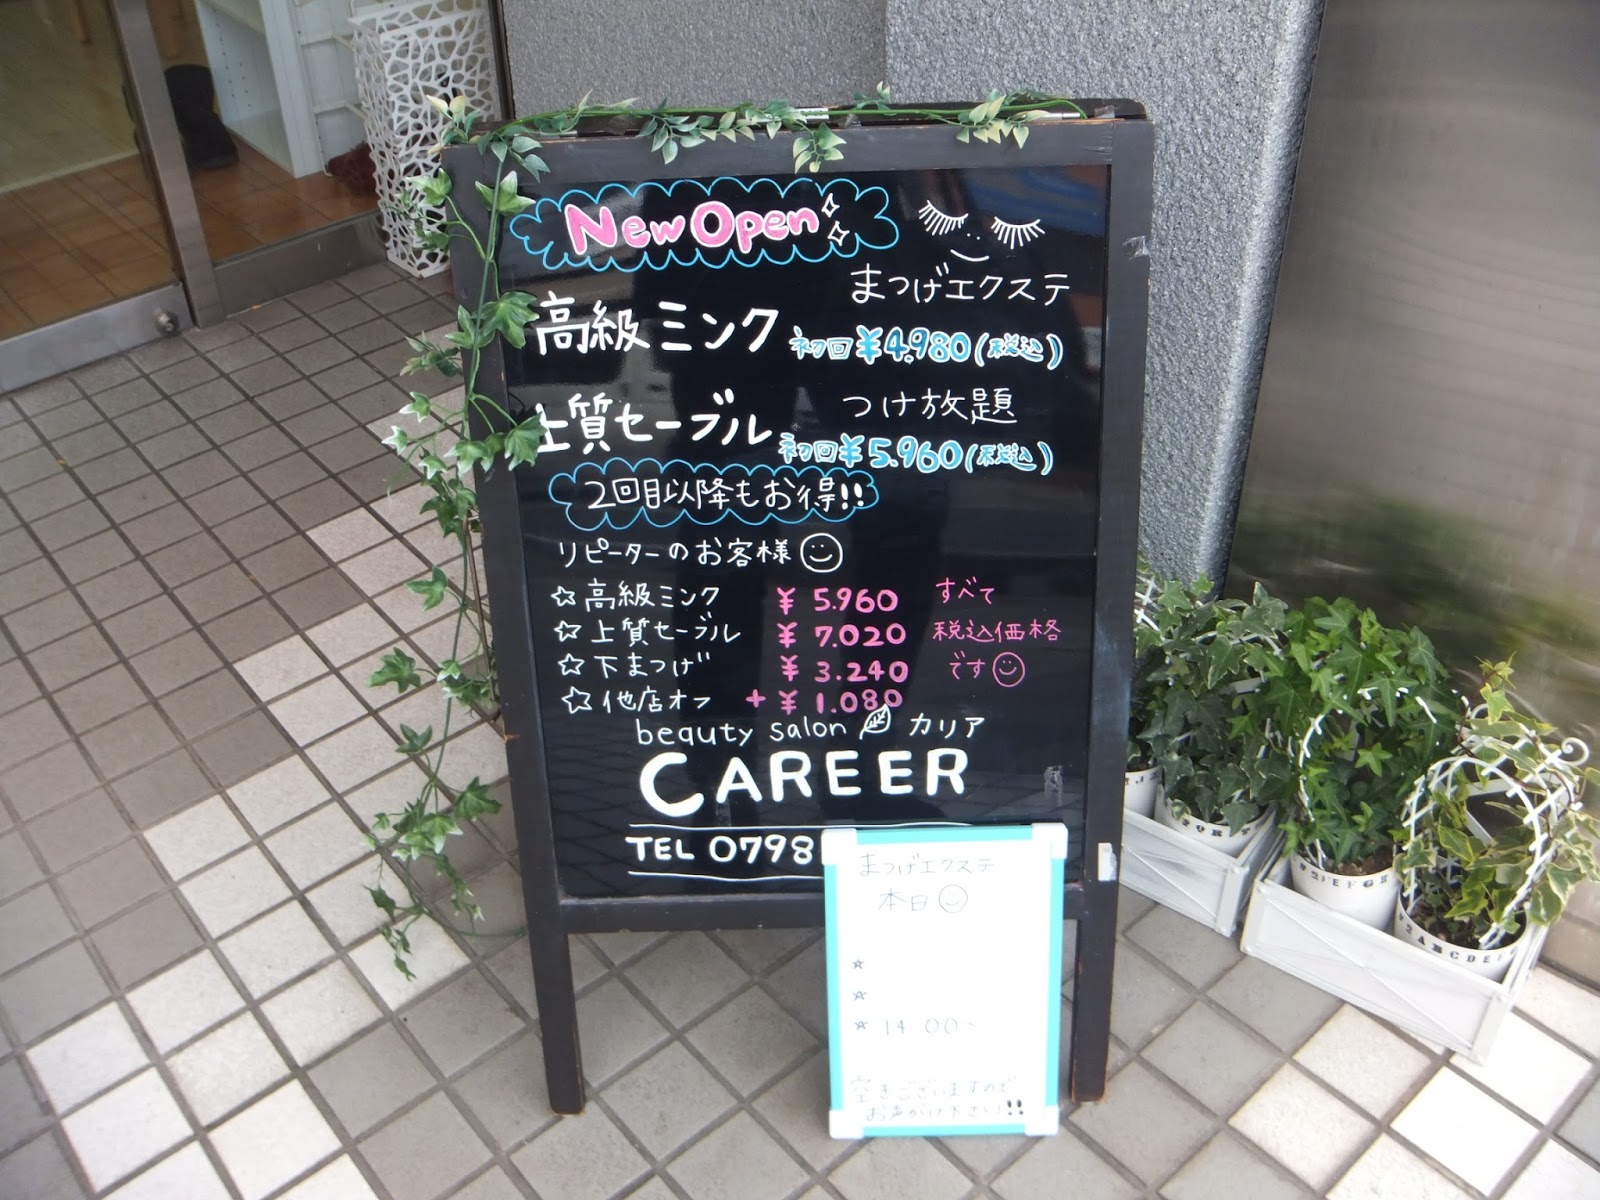 New Open
まつげエクステ
高級ミンク 初回¥4.980(税込)
つけ放題
上質セーブル 初回¥5.960(税込)
2回目以降もお得!!
リピーターのお客様
☆高級ミンク ¥5.960 すべて
☆上質セーブル ¥7.020 税込価格
☆下まつげ ¥3.240 です
☆他店オフ +¥1.080
beauty salon カリア
CAREER
TEL 0798
まつげエクステ
本日
☆
☆
☆ 14 00~
空きございますので
お声がけ下さい!!